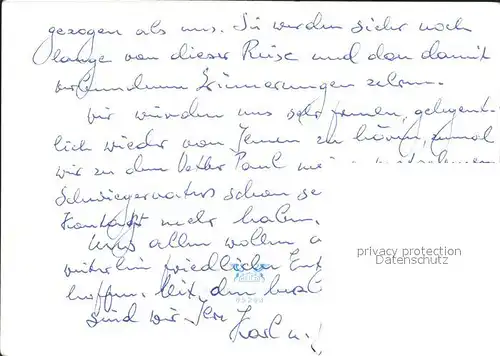 gezogen als uns. Sie werden sicher noch
lange von dieser Reise und den damit
verbundenen Erinnerungen zehren.
Wir würden uns sehr freuen, gelegent-
lich wieder von Ihnen zu hören, zumal
wir zu dem Vetter Paul
Schwiegervaters schon se
Kontakt mehr haben.
Uns allen wollen
weiterhin friedliche Ent
hoffen. Mit den herzl
sind wir Ihre Karl u.
privacy protection
Datenschutz